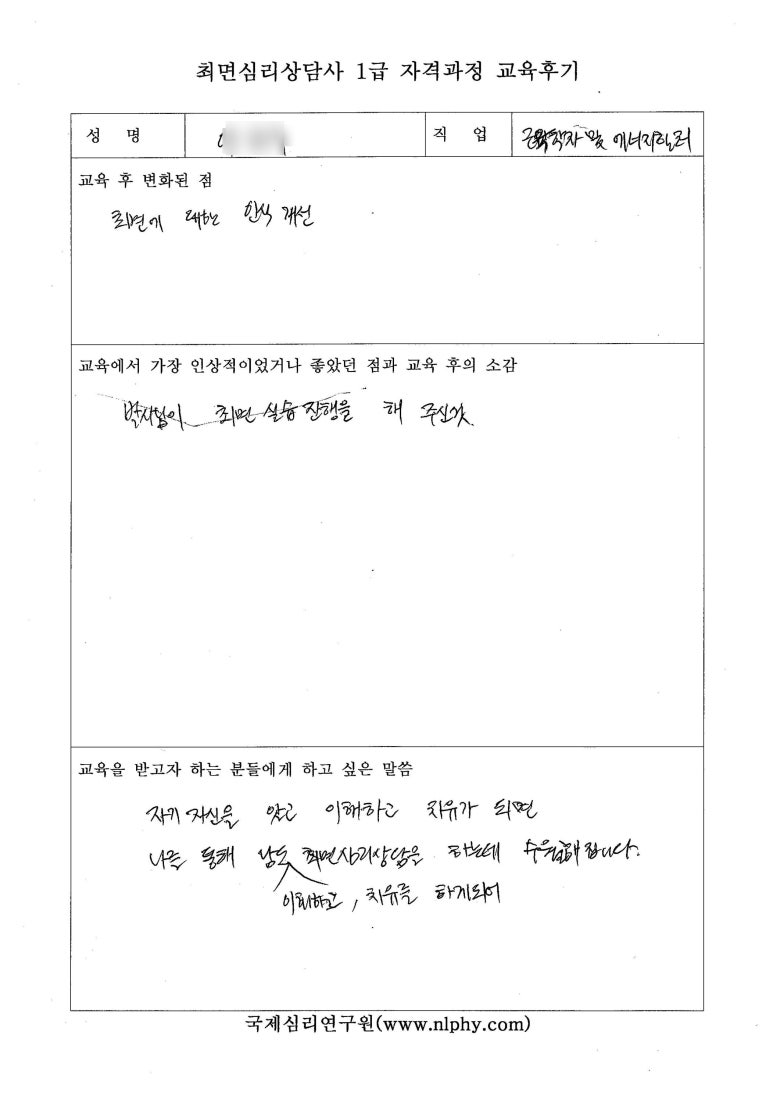 최면심리상담사 1급 자격과정 교육후기
성 명
직 업 및 에너지힐러
교육 후 변화된 점
최면에 대한 인식 개선
교육에서 가장 인상적이었거나 좋았던 점과 교육 후의 소감
박사님이 최면 실습 진행을 해 주신것.
교육을 받고자 하는 분들에게 하고 싶은 말씀
자기 자신을 알고 이해하고 치유가 되면
나를 통해 남도 최면심리상담을 하는데 수월해집니다.
이해하고, 치유를 하게되어
국제심리연구원(www.nlphy.com)